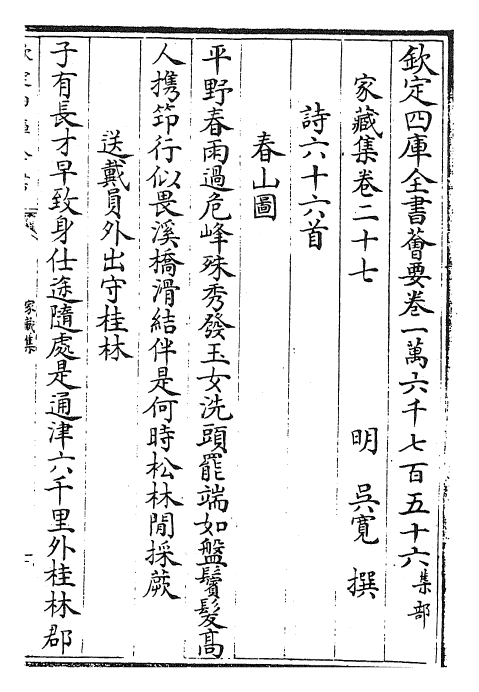 欽定四庫全書薈要卷一萬六千七百五十六集部
家藏集卷二十七　明　吳寬　撰
詩六十六首
春山圖
平野春雨過危峰殊秀發玉女洗頭罷端如盤鬢髮高
人携笻行似畏溪橋滑結伴是何時松林閒採蕨
送戴員外出守桂林
子有長才早致身仕途隨處是通津六千里外桂林郡
家藏集
一